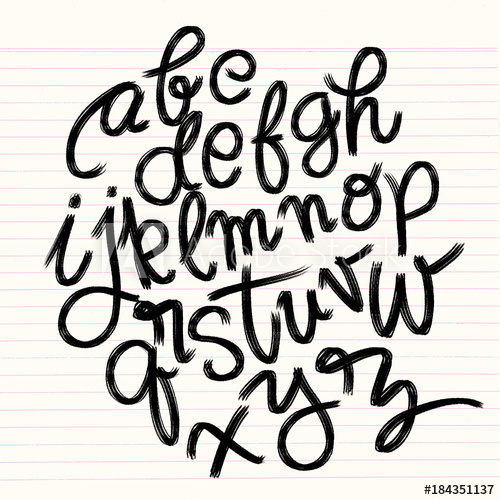 abc
defgh
ijklmnop
qrstuvw
xyz
Adobe Stock
#184351137